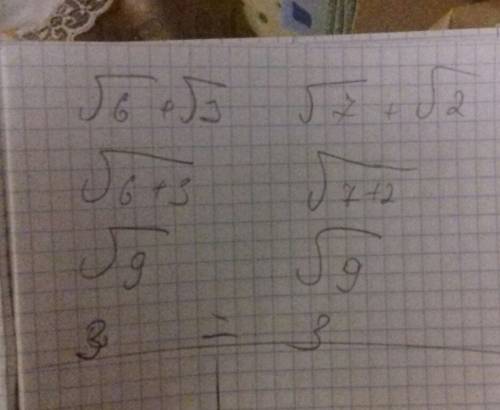 √6 + √3 √7 + √2
√6+3 √7+2
√9 √9
3 = 3